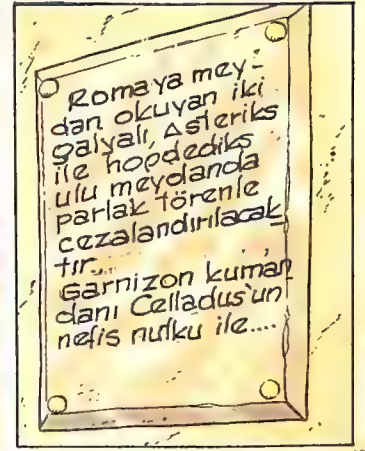 Romaya mey-
dan okuyan iki
galyalı, Asteriks
ile hopdediks
ulu meydanda
parlak törenle
cezalandırılacak
tır...
Garnizon kuman
danı Celladus'un
nefis nutku ile....